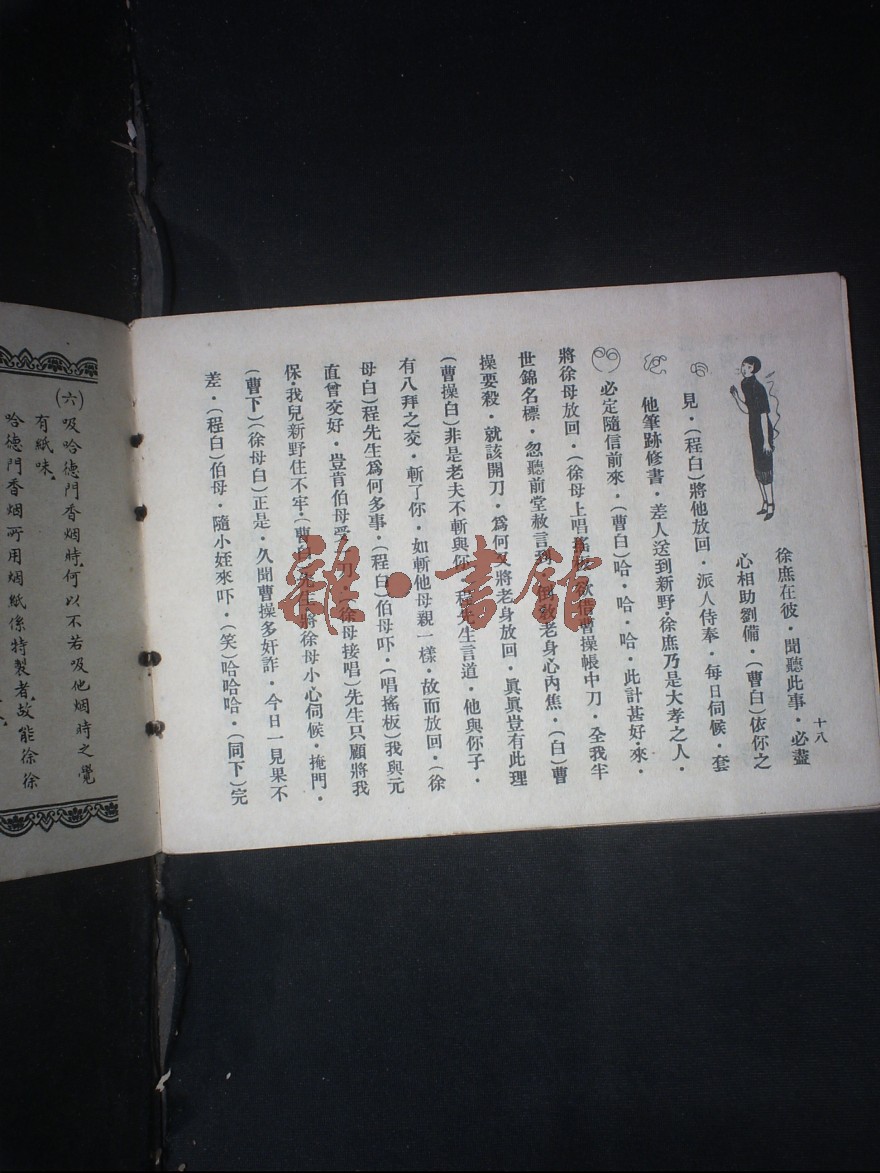 十八
徐庶在彼・聞聽此事・必盡
心相助劉備・（曹白）依你之
見・（程白）將他放回・派人侍奉・每日伺候・套
他筆跡修書・差人送到新野・徐庶乃是大孝之人・
必定隨信前來・（曹白）哈・哈・哈・此計甚好・來・
將徐母放回・（徐母上唱搖板）欲借曹操帳中刀・全我半
世錦名標・忽聽前堂赦言到・老身心內焦・（白）曹
操要殺・就該開刀・爲何又將老身放回・眞眞豈有此理
（曹操白）非是老夫不斬與你・程先生言道・他與你子・
有八拜之交・斬了你・如斬他母親一樣・故而放回・（徐
母白）程先生爲何多事・（程白）伯母吓・（唱搖板）我與元
直曾交好・豈肯伯母受刀・（徐母接唱）先生只顧將我
保・我兒新野住不牢・（曹白）先生將徐母小心伺候・掩門・
（曹下）（徐母白）正是・久聞曹操多奸詐・今日一見果不
差・（程白）伯母・隨小姪來吓・（笑）哈哈哈・（同下）完
雜・書館
（六）吸哈德門香烟時何以不若吸他烟時之覺
有紙味
哈德門香烟所用烟紙係特製者故能徐徐